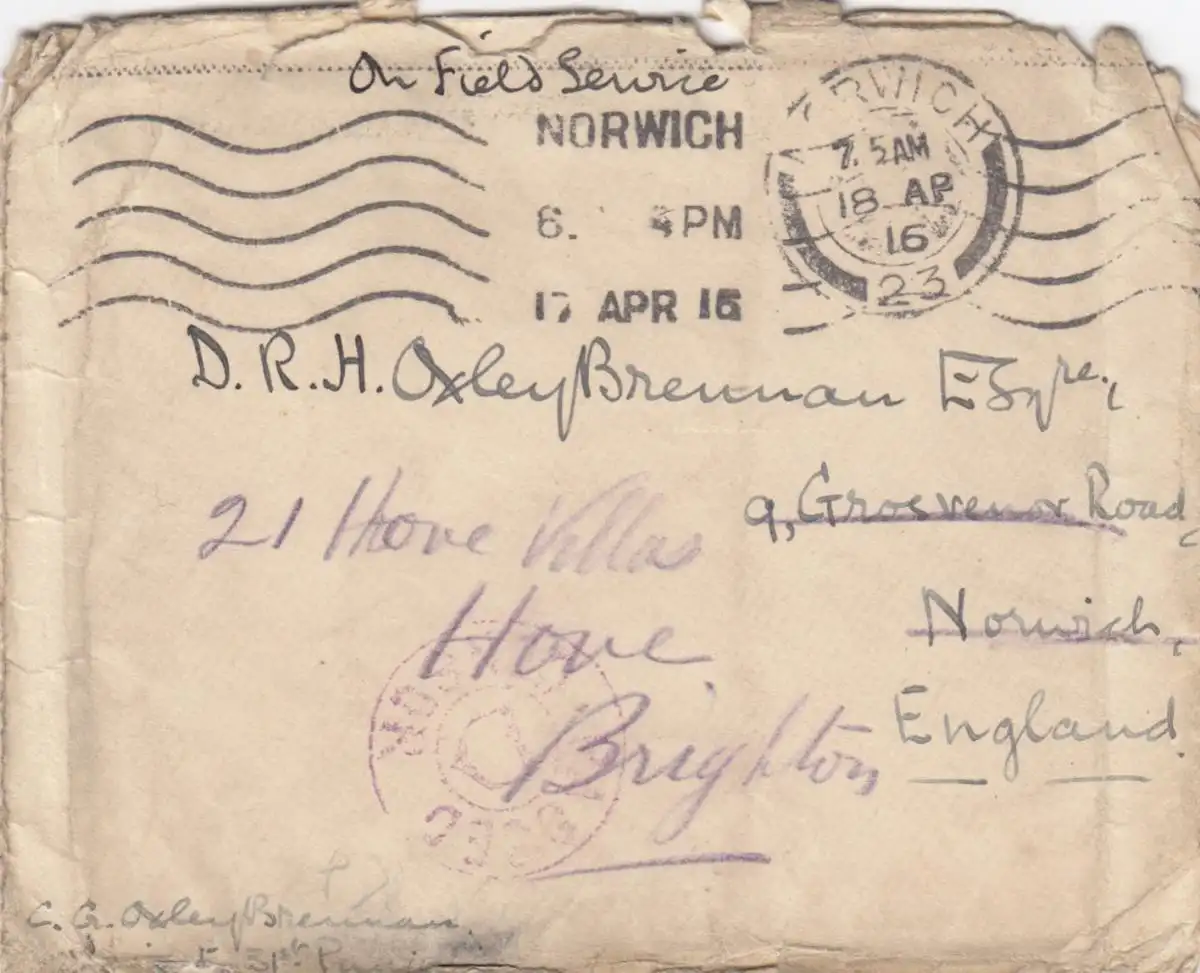 On Field Service
NORWICH
6. 4PM
17 APR 16
NORWICH
7. 5AM
18 AP
16
23
D. R. H. Oxley Brennan Esqre.,
9, Grosvenor Road,
Norwich,
England.
21 Hove Villas
Hove
Brighton
C. G. Oxley Brennan.